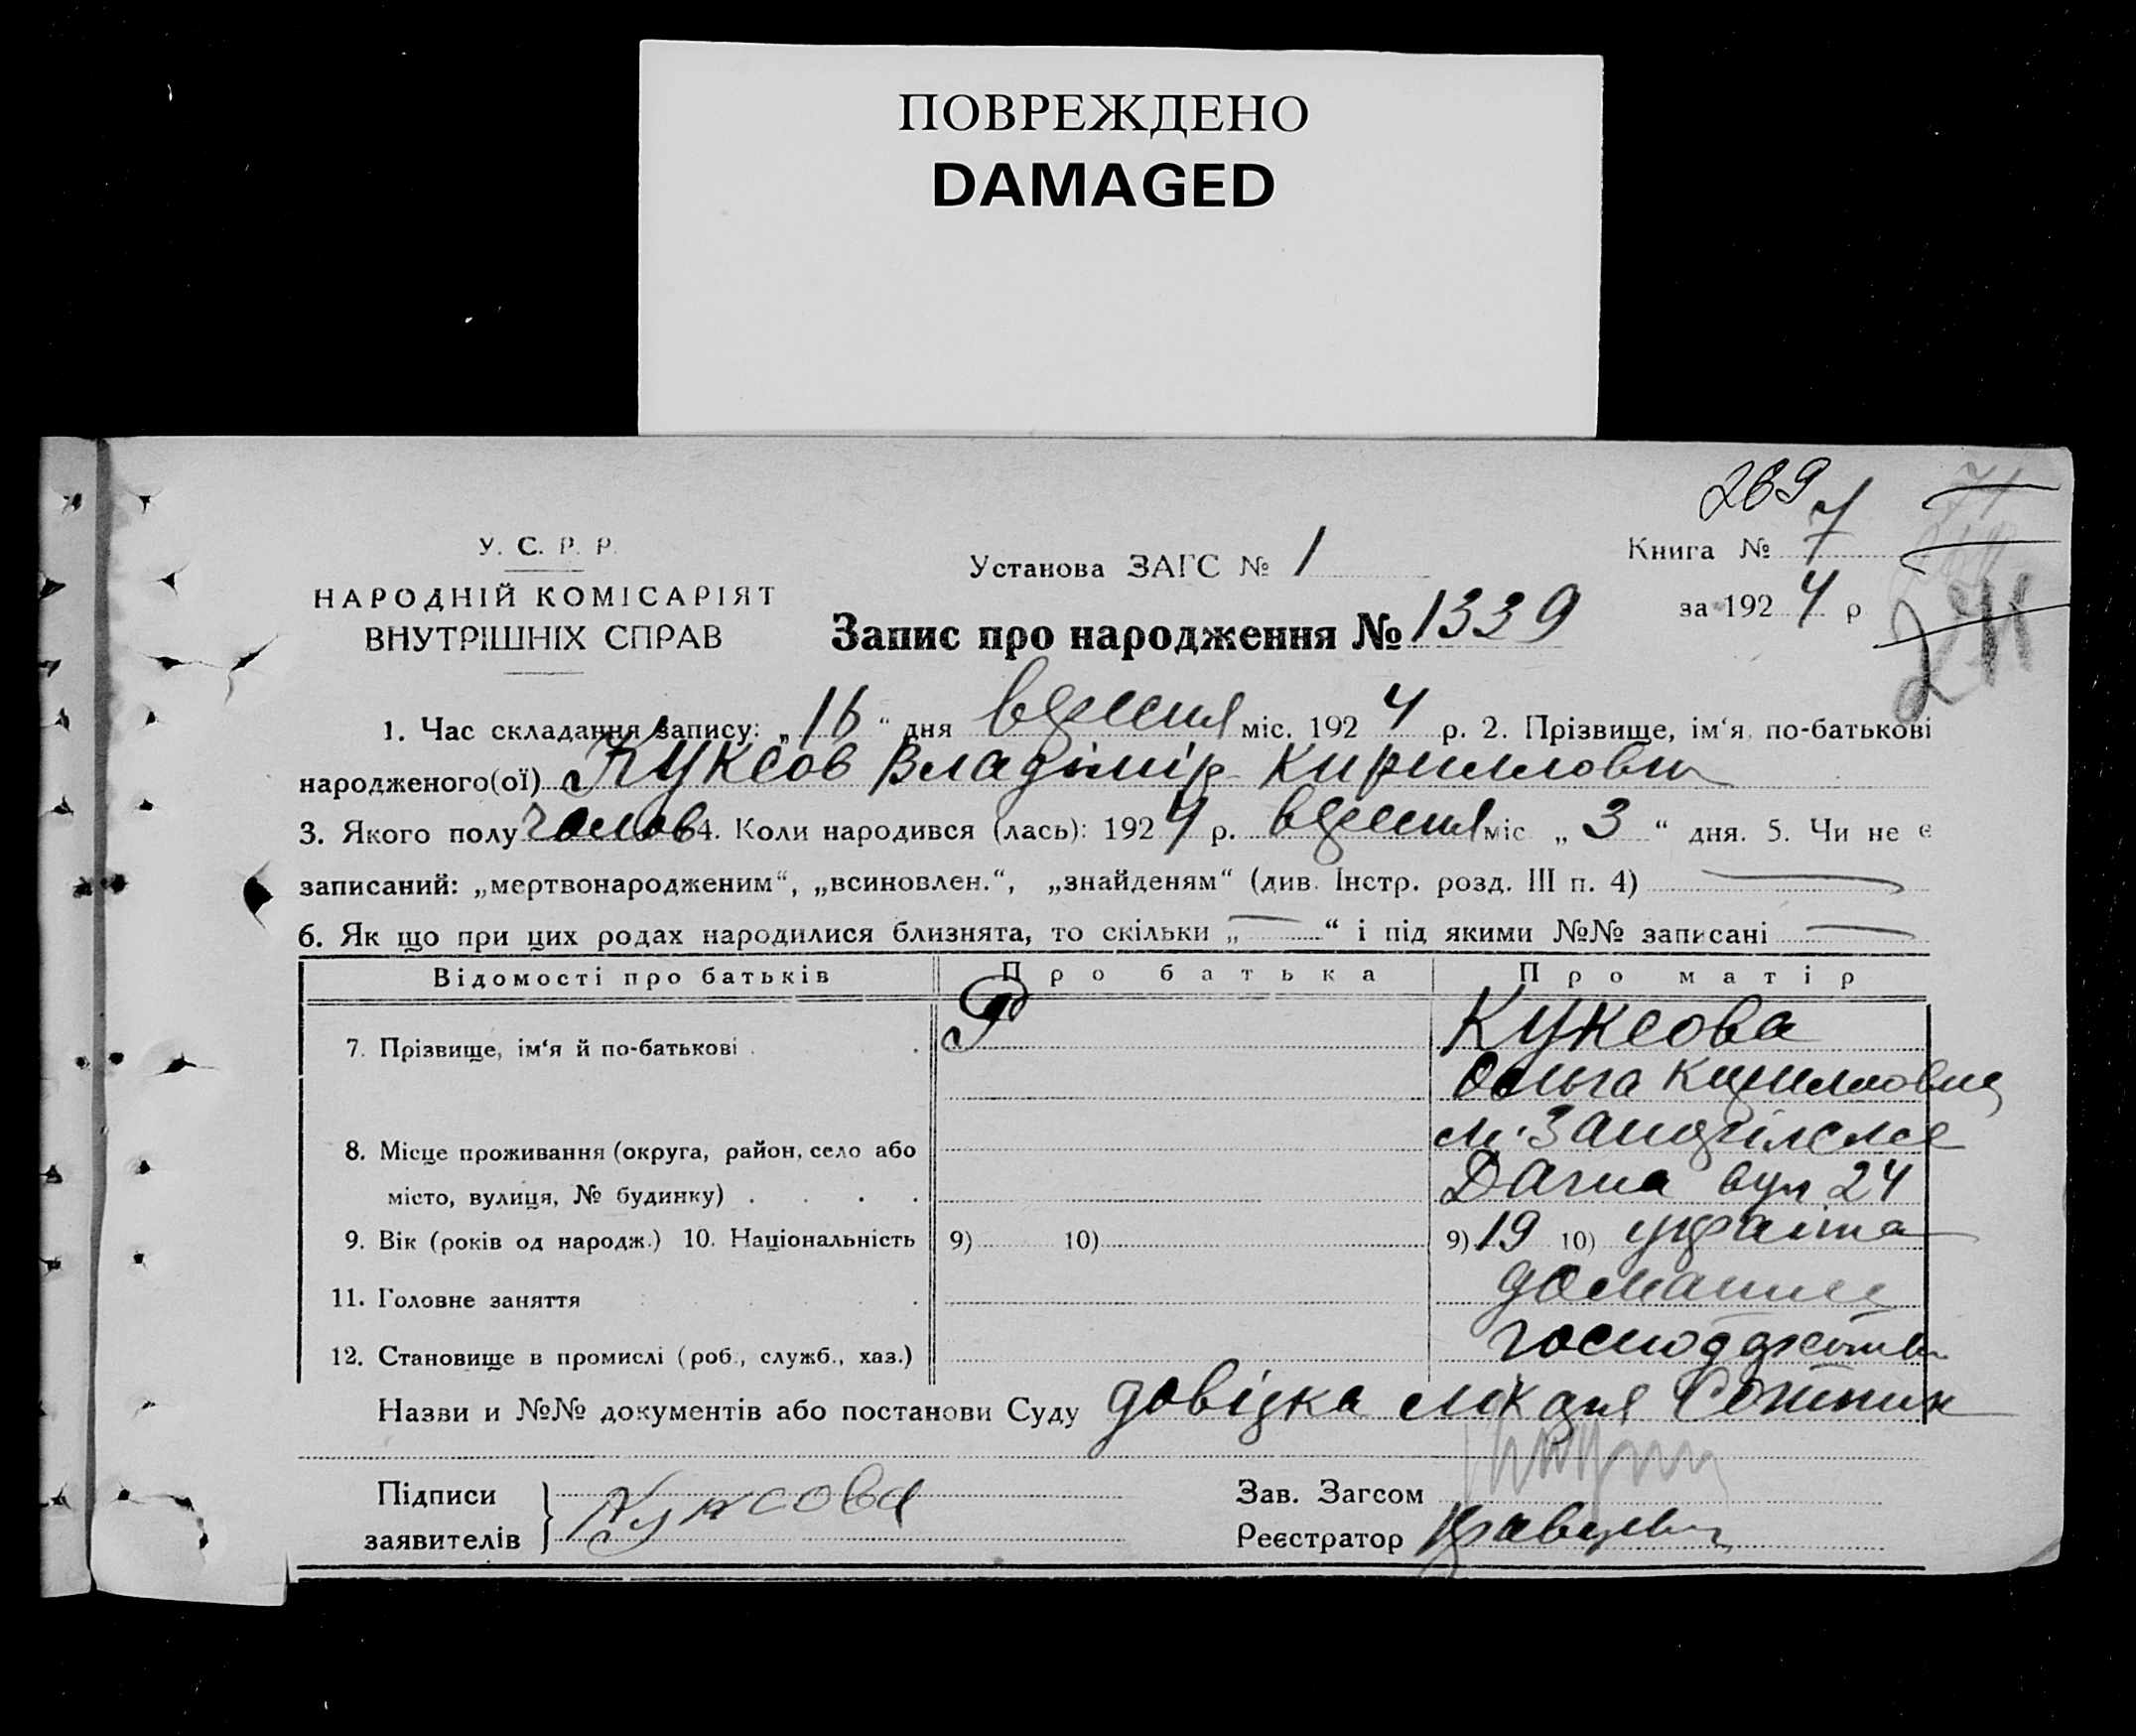 ПОВРЕЖДЕНО
DAMAGED
269
71
У. С. Р. Р.
НАРОДНІЙ КОМІСАРІЯТ
ВНУТРІШНІХ СПРАВ
Установа ЗАГС № 1
Книга № 7
за 1924 р
241
Запис про народження № 1339
1. Час складання запису: „16“ дня вересня міс. 1924 р. 2. Прізвище, ім‘я, по-батькові
народженого(ої) Куксов Владімір Кирилло­вич
3. Якого полу чолов 4. Коли народився (лась): 1924 р. вересня міс „3“ дня. 5. Чи не є
записаний: „мертвонародженим“, „всиновлен.“, „знайденям“ (див. Інстр. розд. III п. 4) —
6. Як що при цих родах народилися близнята, то скільки „—“ і під якими №№ записані —
Відомості про батьків Про батька Про матір
7. Прізвище, ім‘я й по-батькові Куксова
Ольга Кирилловна
8. Місце проживання (округа, район, село або
місто, вулиця, № будинку) Дачна вул 24
9. Вік (років од народж.) 10. Національність 9) 10) 9) 19 10) україн­ка
11. Головне заняття домашнє
12. Становище в промислі (роб., служб., хаз.) господарство
Назви и №№ документів або постанови Суду довідка
Підписи
заявителів Куксова
Зав. Загсом
Реєстратор